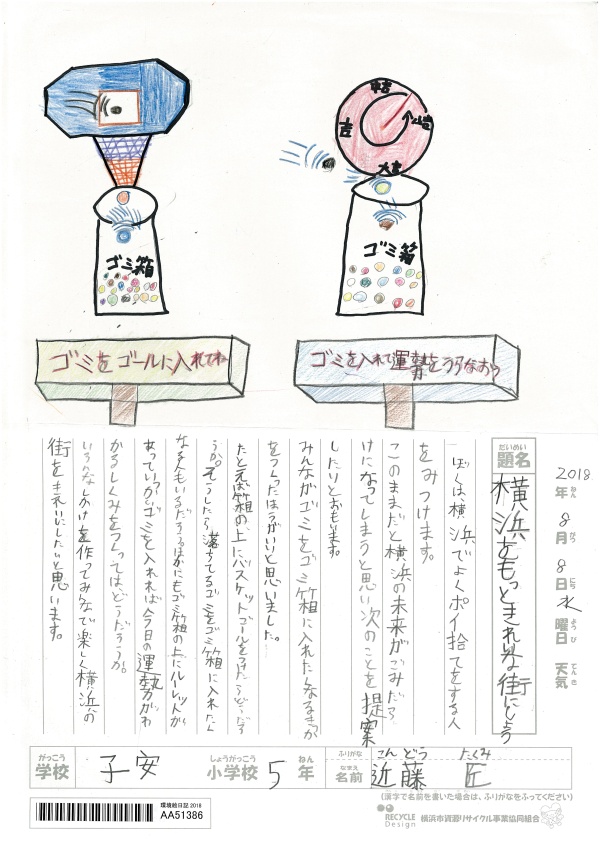 中吉
小吉
吉
大吉
ゴミ箱
ゴミ箱
ゴミをゴールに入れてね
ゴミを入れて運勢をうらなおう
2018年 8月 8日 水曜日 天気
ねん がつ にち ようび てんき
だいめい
題名
横浜をもっときれいな街にしよう
ぼくは、横浜でよくポイ捨てをする人
をみつけます。
このままだと横浜の未来がごみだら
けになってしまうと思い次のことを提案
したりとおもいます。
みんながゴミをゴミ箱に入れたくなるきっか
をつくったほうがいいと思いました。
たとえば箱の上にバスケットゴールをつけたらどうだろ
うか。そうしたら落ちてるゴミをゴミ箱に入れたく
なる人もいるだろう。ほかにもゴミ箱の上にルーレットが
あっていっかいゴミを入れれば今日の運勢がわ
かるしくみをつくってはどうだろうか。
いろんなしかけを作ってみんなで楽しく横浜の
街をキレイにしたいと思います。
がっこう
学校
子安
しょうがっこう
小学校
5
ねん
年
ふりがな
こんどう たくみ
なまえ
名前
近藤 匠
(漢字で名前を書いた場合は、ふりがなをふってください)
環境絵日記 2018
AA51386
RECYCLE Design
横浜市資源リサイクル事業協同組合